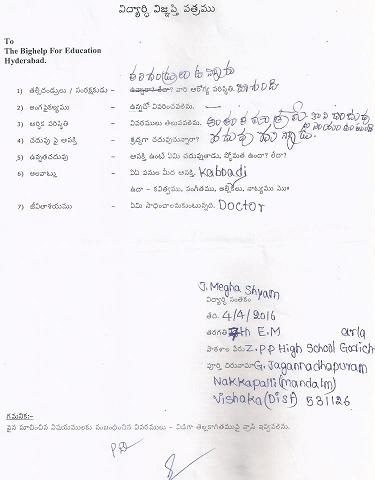 విద్యార్థి విజ్ఞప్తి పత్రము
To
The Bighelp For Education
Hyderabad.
తల్లిదండ్రులు ఉన్నారు
1) తల్లిదండ్రులు / సంరక్షకుడు - ఉన్నారా? లేదా? వారి ఆరోగ్య పరిస్థితి. బాగుంది
2) అంగవైకల్యము - ఉన్నచో వివరించవలెను.
3) ఆర్థిక పరిస్థితి - వివరములు తెలుపవలెను.
4) చదువు పై ఆసక్తి - శ్రద్ధగా చదువుచున్నారా?
5) ఉన్నతచదువు - ఆసక్తి ఉంటే ఏమి చదువుతాడు, స్తోమత ఉందా? లేదా?
6) అలవాట్లు - ఏఏ పనుల మీద ఆసక్తి. Kabbadi
ఉదా - కవిత్వము, సంగీతము, అల్లికలు, నాట్యము మొ॥
7) జీవితాశయము - ఏమి సాధించాలనుకుంటున్నది. Doctor
J. Megha Shyam
విద్యార్థి సంతకం
తేది. 4/4/2016
తరగతి 7th E.M arla
పాఠశాల పేరు Z.P.P High School Godich
పూర్తి చిరునామా G. Jagannadhapuram
Nakkapalli (mandalm)
Vishaka (Dist) 531126
గమనిక:-
పైన సూచించిన విషయములకు సంబంధించిన వివరములు - విడిగా తెల్లకాగితముపై వ్రాసి ఇవ్వవలెను.